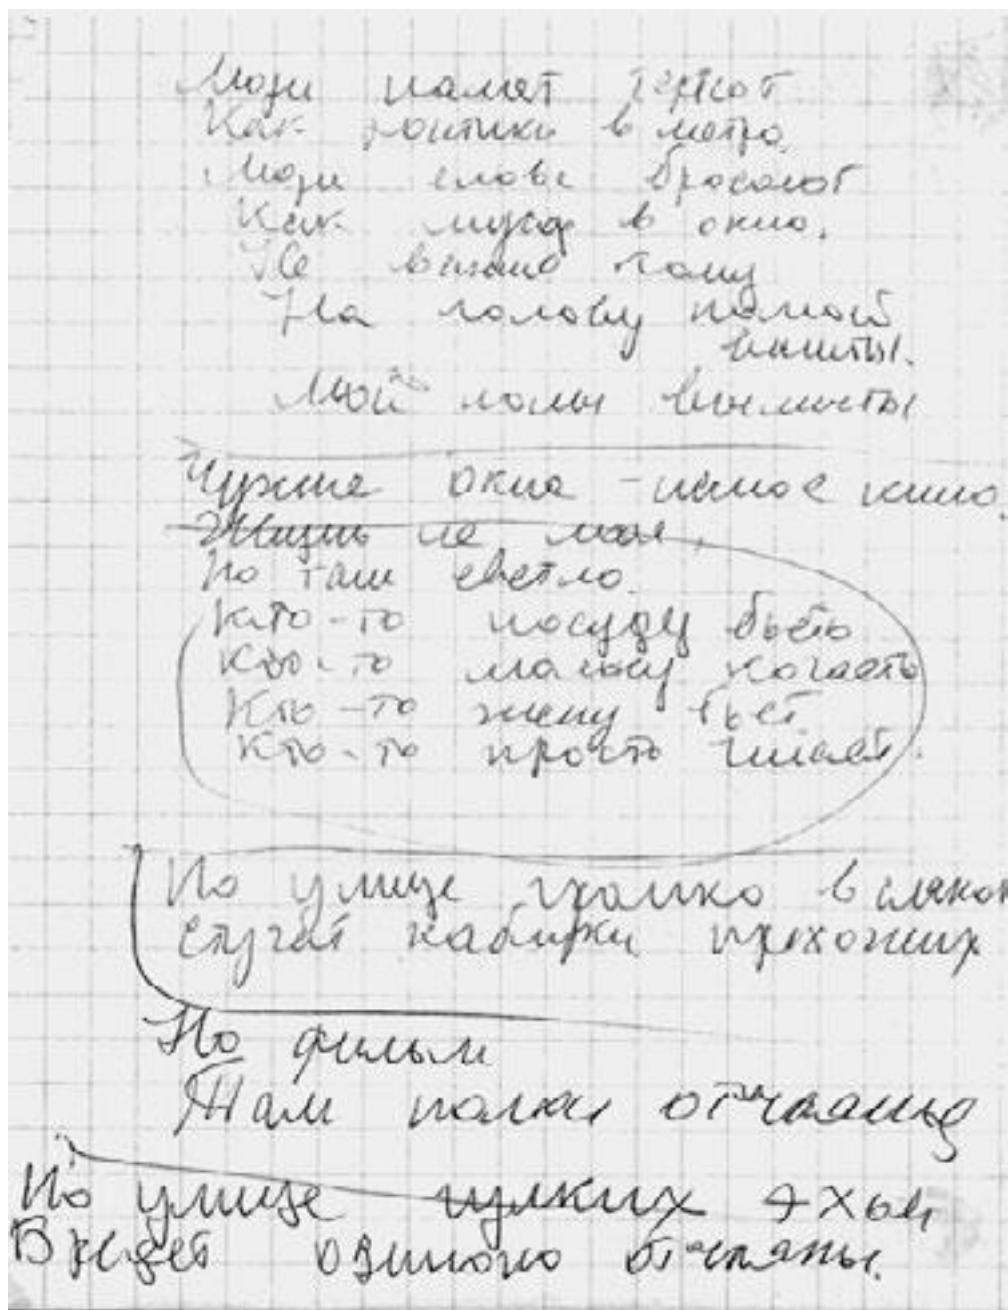 Люди память теряют
Как фантики в метро.
Люди слова бросают
Как мусор в окно.
Не важно кому
На голову полной
Мой
Чужие окна - немое кино.
Жизнь не моя,
Но там светло.
Кто-то посуду бьёть
Кто-то малышу качаеть
Кто-то жену бьет
Кто-то просто читает.
По улице громко в
Стучат каблуки прохожих
Но фильм
Там полон отчаянья
По улице гулких эхом
Бредет одиноко отчаянье.